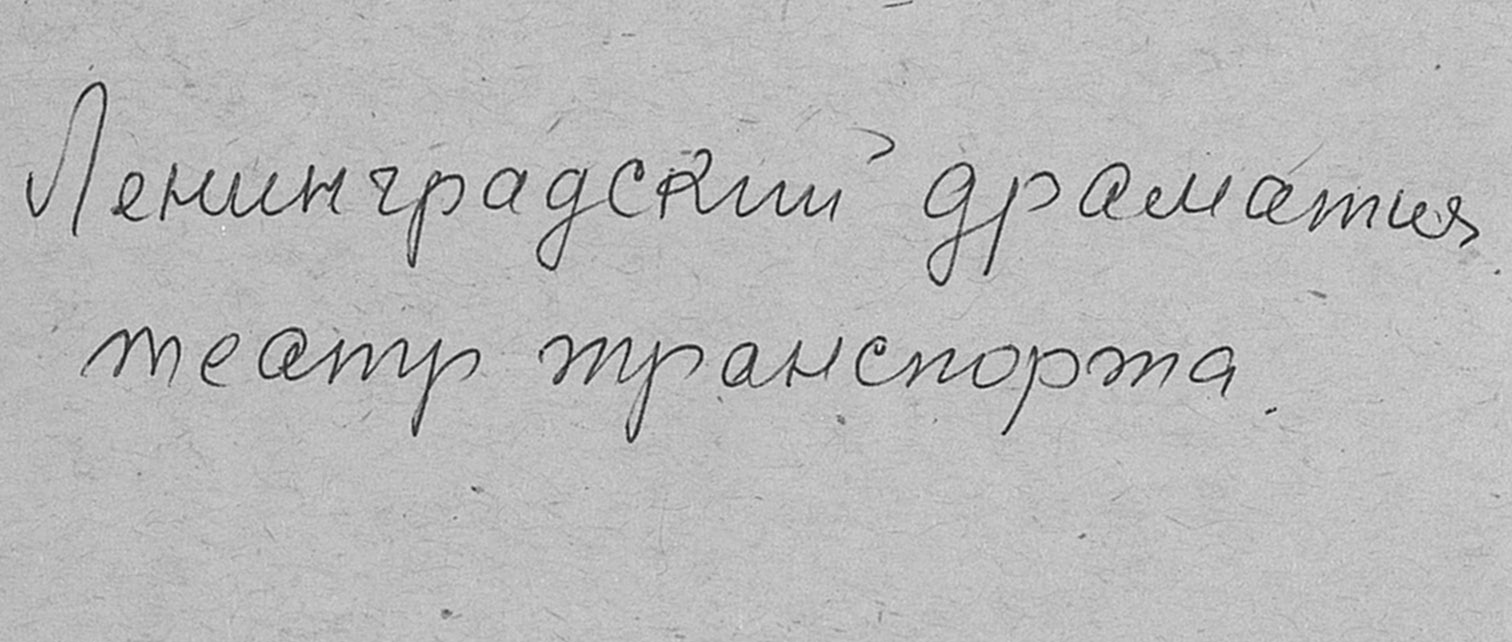 Ленинградский драматич.
театр транспорта.